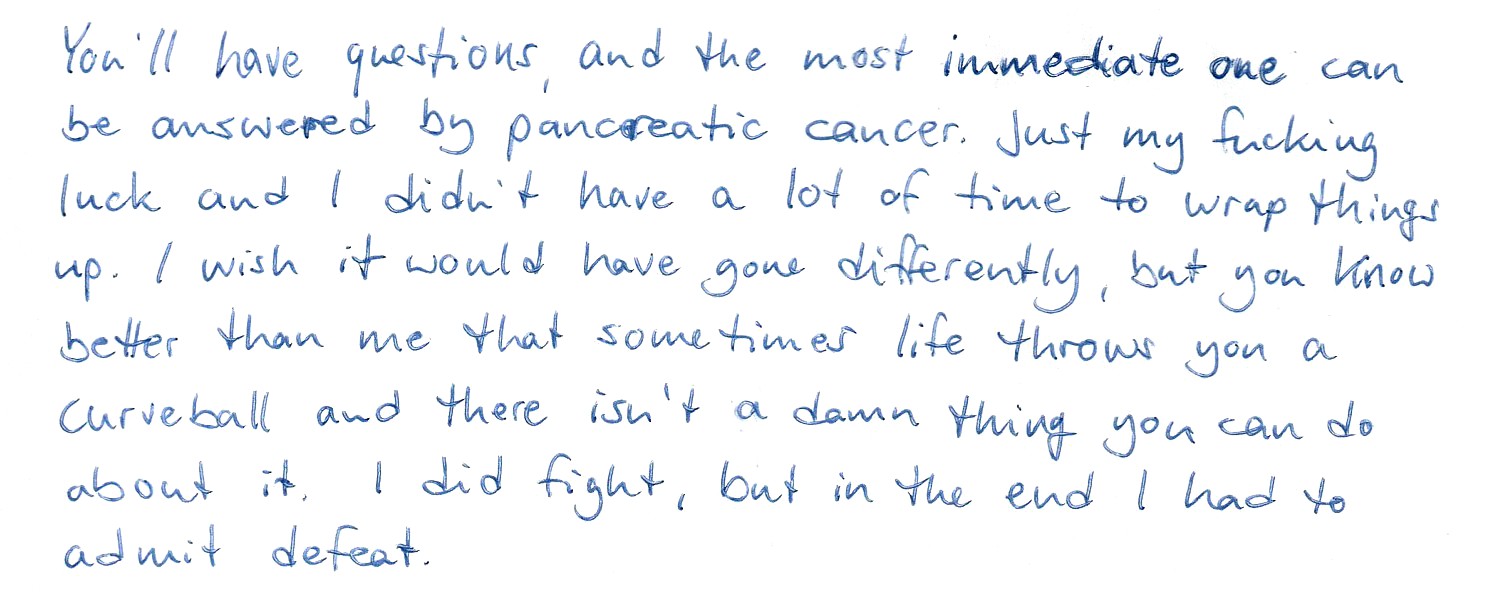 You'll have questions, and the most immediate one can
be answered by pancreatic cancer. Just my fucking
luck and I didn't have a lot of time to wrap things
up. I wish it would have gone differently, but you know
better than me that sometimes life throws you a
curveball and there isn't a damn thing you can do
about it. I did fight, but in the end I had to
admit defeat.